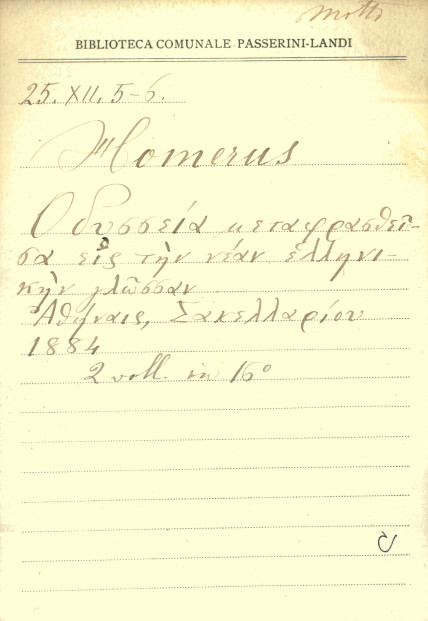 Motti
BIBLIOTECA COMUNALE PASSERINI-LANDI
25. XII. 5-6.
Homerus
Ὀδυσσεία μεταφρασθεῖ-
σα εἰς τὴν νέαν ἑλληνι-
κὴν γλῶσσαν
Ἀθήναις, Σακελλαρίου
1884
2 voll. in 16°